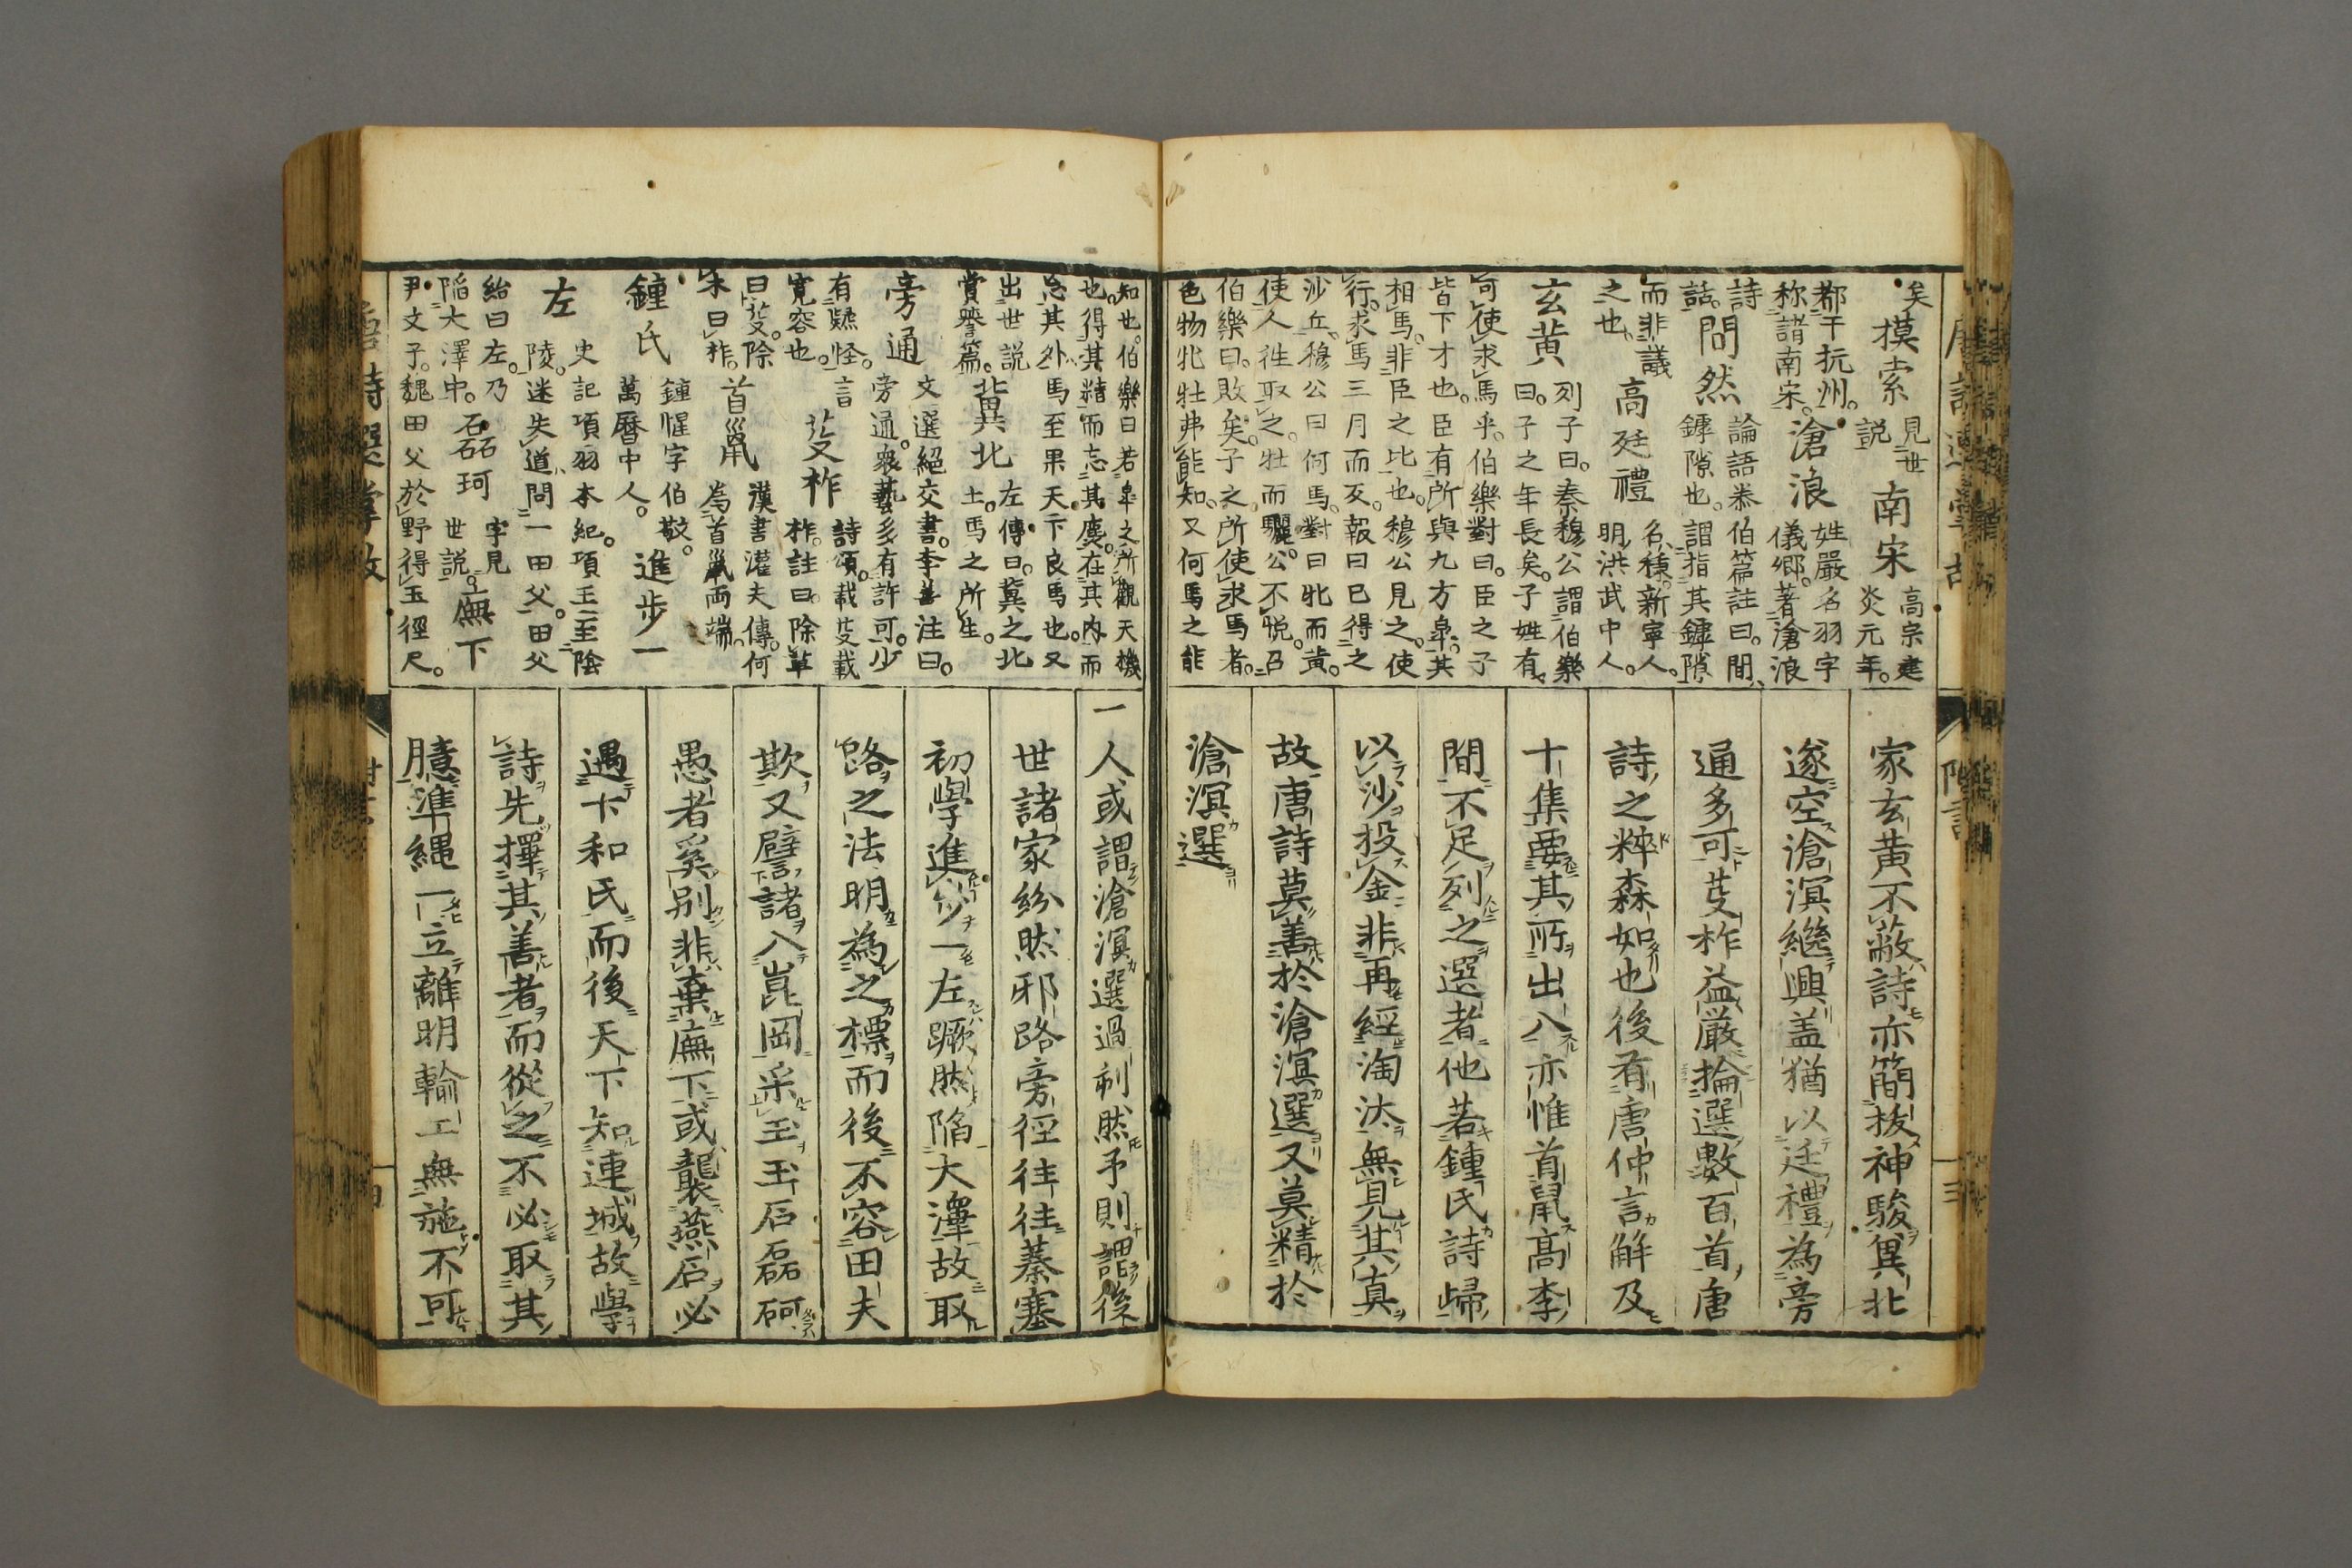 矣 摸索 見世說 南宋 高宗建炎元年。
都于抗州。称諸南宋。 滄浪 姓嚴名羽字儀鄉。著滄浪
詩話。 問然 論語泰伯篇註曰。間、鏬隙也。謂指其鏬隙
而非議之也。 高廷禮 名棅。新寧人。明洪武中人。
玄黃 列子曰。秦穆公謂伯樂曰。子之年長矣。子姓有
可使求馬乎。伯樂對曰。臣之子
皆下才也。臣有所與九方皐。其
相馬。非臣之比也。穆公見之。使
行。求馬三月而反。報曰已得之
沙丘。穆公曰何馬。對曰牝而黄。
使人徃取之。牡而驪。公不悅。召
伯樂曰。敗矣。子之所使求馬者。
色物牝牡弗能知。又何馬之能
家玄黃不蔽詩亦簡拔神駿兾北
遂空滄溟繼興盖猶以廷禮為旁
通多可芟柞益嚴掄選數百首唐
詩之粹森如也後有唐仲言解及
十集要其所出入亦惟首鼠高李
間不足列之選者他若鍾氏詩歸
以沙投金非再經淘汰無見其真
故唐詩莫善於滄溟選又莫精於
滄溟選
知也。伯樂曰若皐之所觀天機
也。得其精而忘其麤。在其内而
忘其外。馬至果天下良馬也。又
出世說賞譽篇。 兾北 左傳曰。冀之北土。馬之所生。
旁通 文選絕交書。李善注曰。旁通。衆藝多有許可。少
有疑怪。言寛容也。 芟柞 詩頌。載芟載柞。註曰。除草
曰芟。除木曰柞。 首鼠 漢書灌夫傳。何為首鼠両端。
鍾氏 鍾惺字伯敬。萬曆中人。 進步一
左 史記項羽本紀。項王至陰陵。迷失道。問一田父。田父
紿曰左。乃陷大澤中。 磊砢 字見世說。 廡下
尹文子。魏田父於野得玉徑尺。
一人或謂滄溟選過刻然予則謂後
世諸家紛然邪路旁徑往往蓁塞
初學進步一左蹶然陷大澤故取
路之法明為之標而後不容田夫
欺又譬諸入崑岡采玉玉石磊砢
愚者奚别非棄廡下或襲燕石必
遇卞和氏而後天下知連城故學
詩先擇其善者而從之不必取其
臆準縄一立離明輸工無施不可